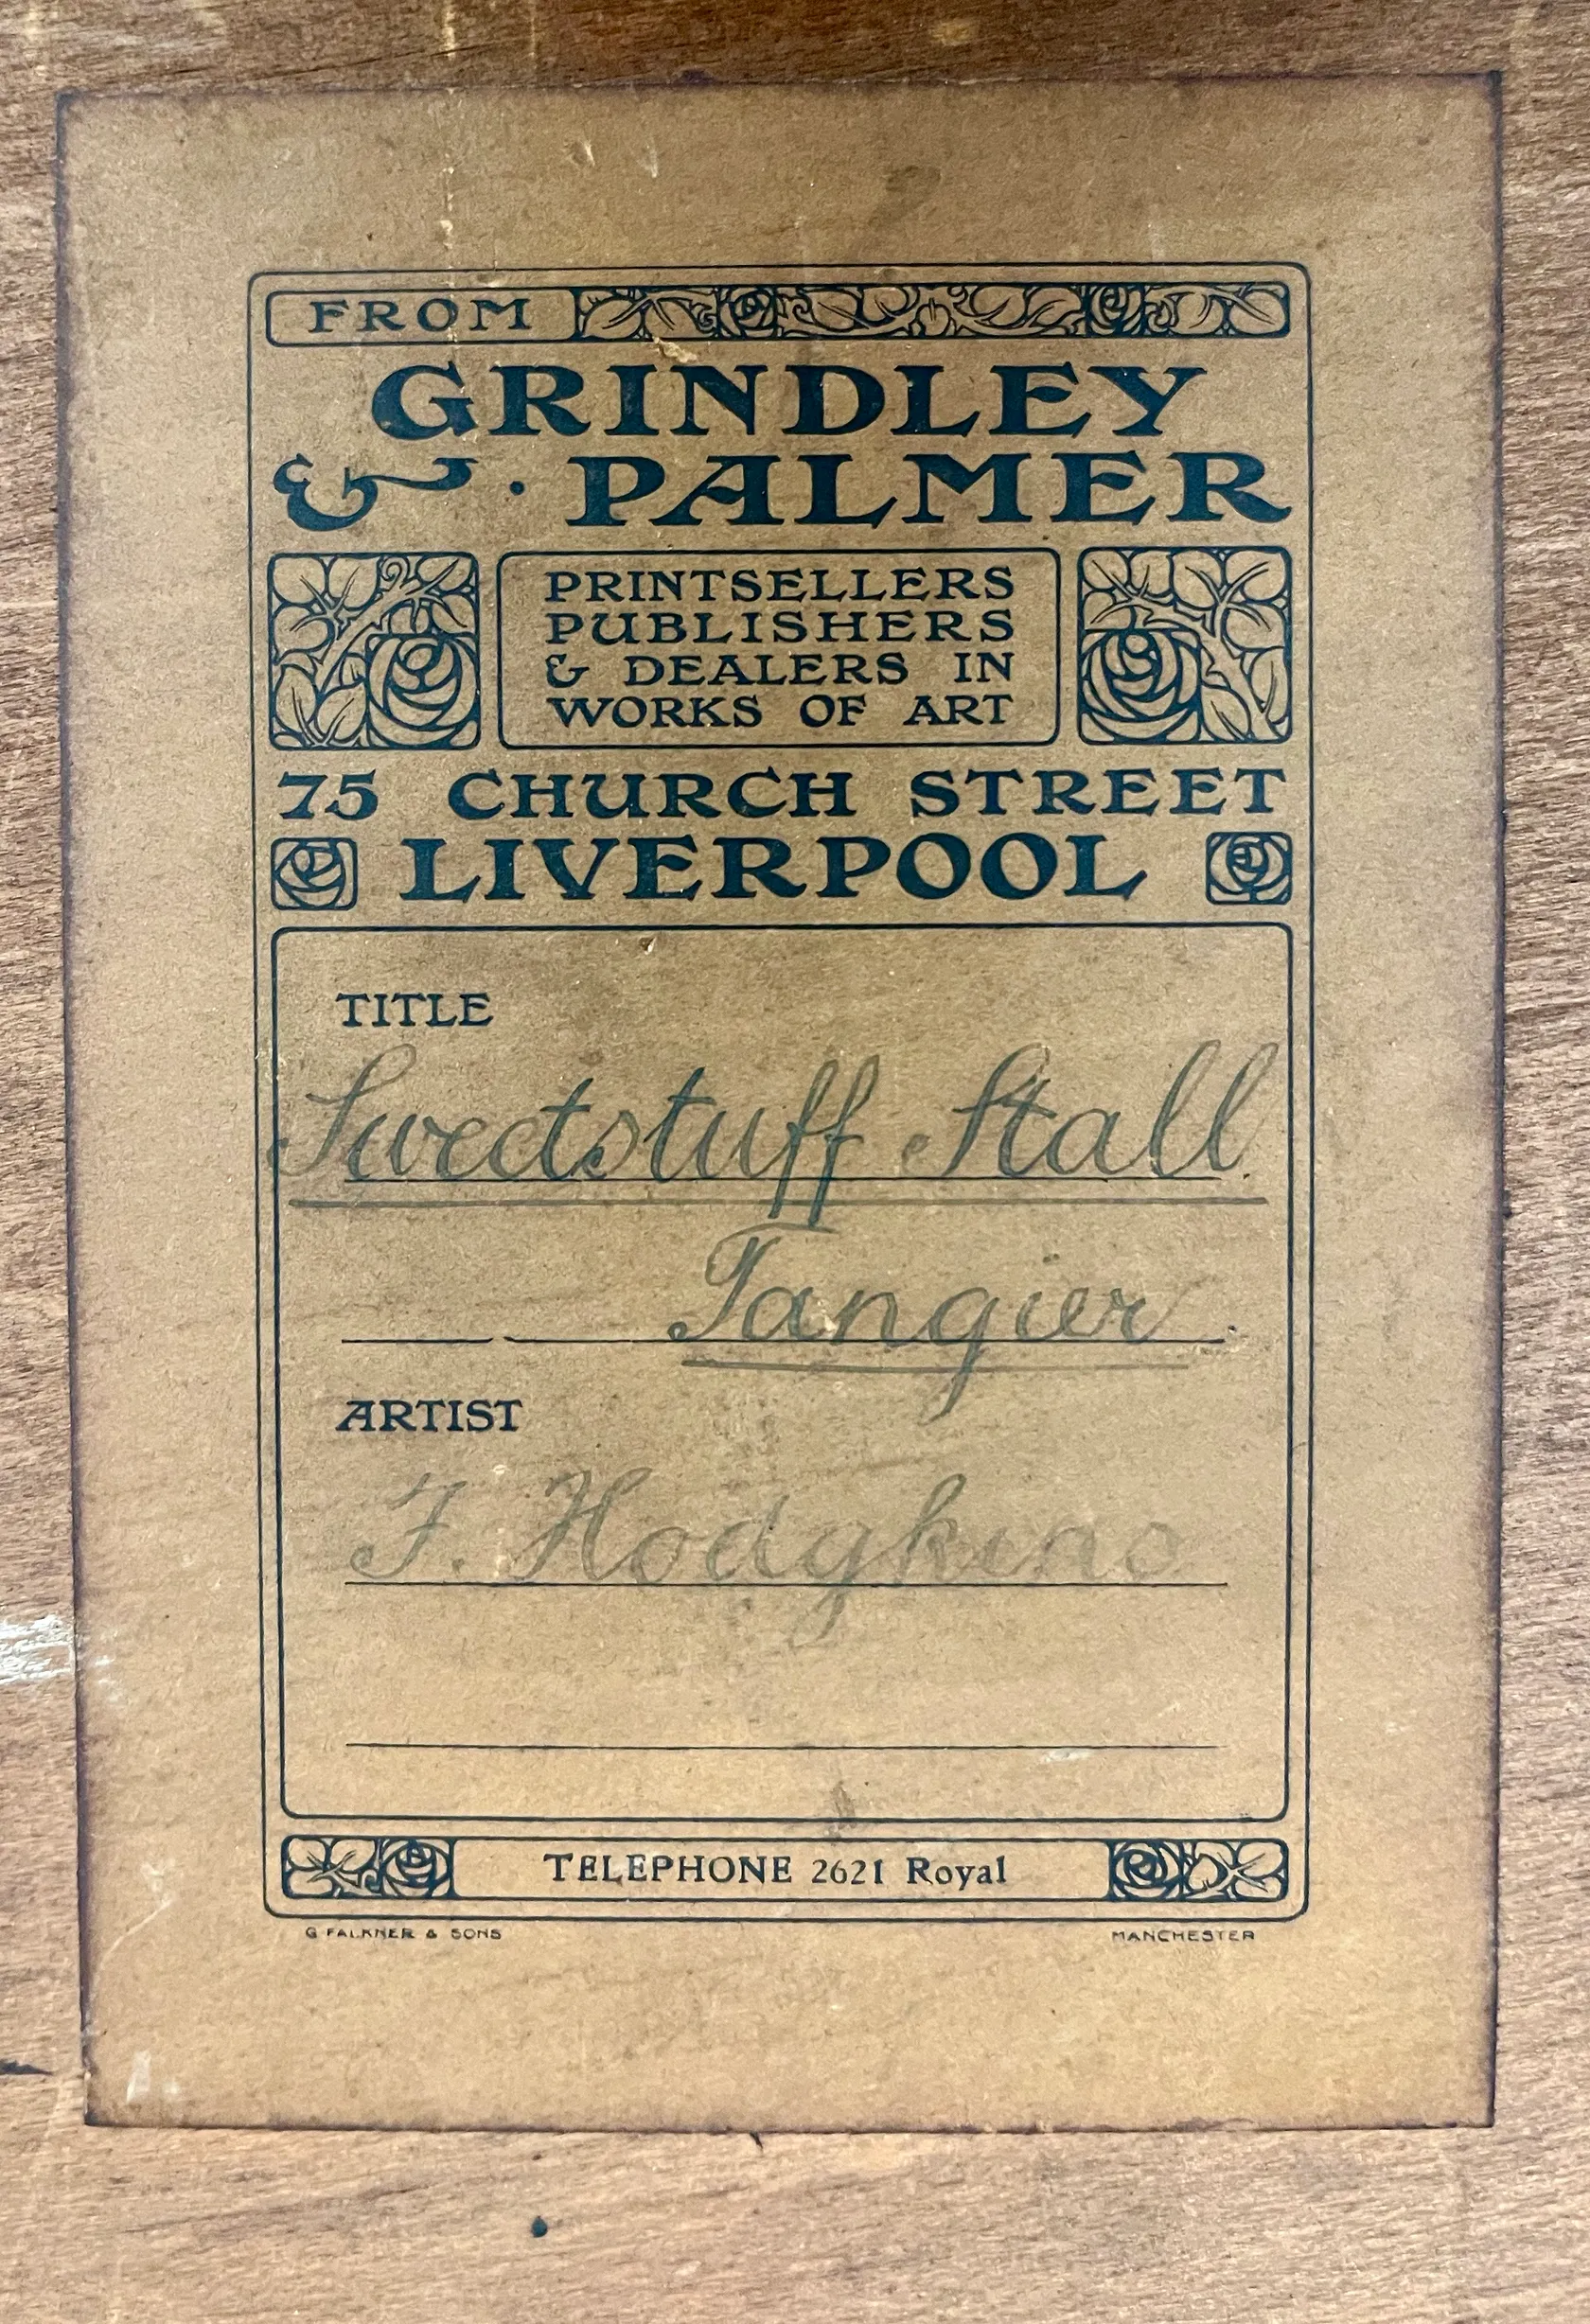 FROM
GRINDLEY
& · PALMER
PRINTSELLERS
PUBLISHERS
& DEALERS IN
WORKS OF ART
75 CHURCH STREET
LIVERPOOL
TITLE
Sweetstuff Stall.
Tangier.
ARTIST
F. Hodgkins
TELEPHONE 2621 Royal
G FALKNER & SONS MANCHESTER